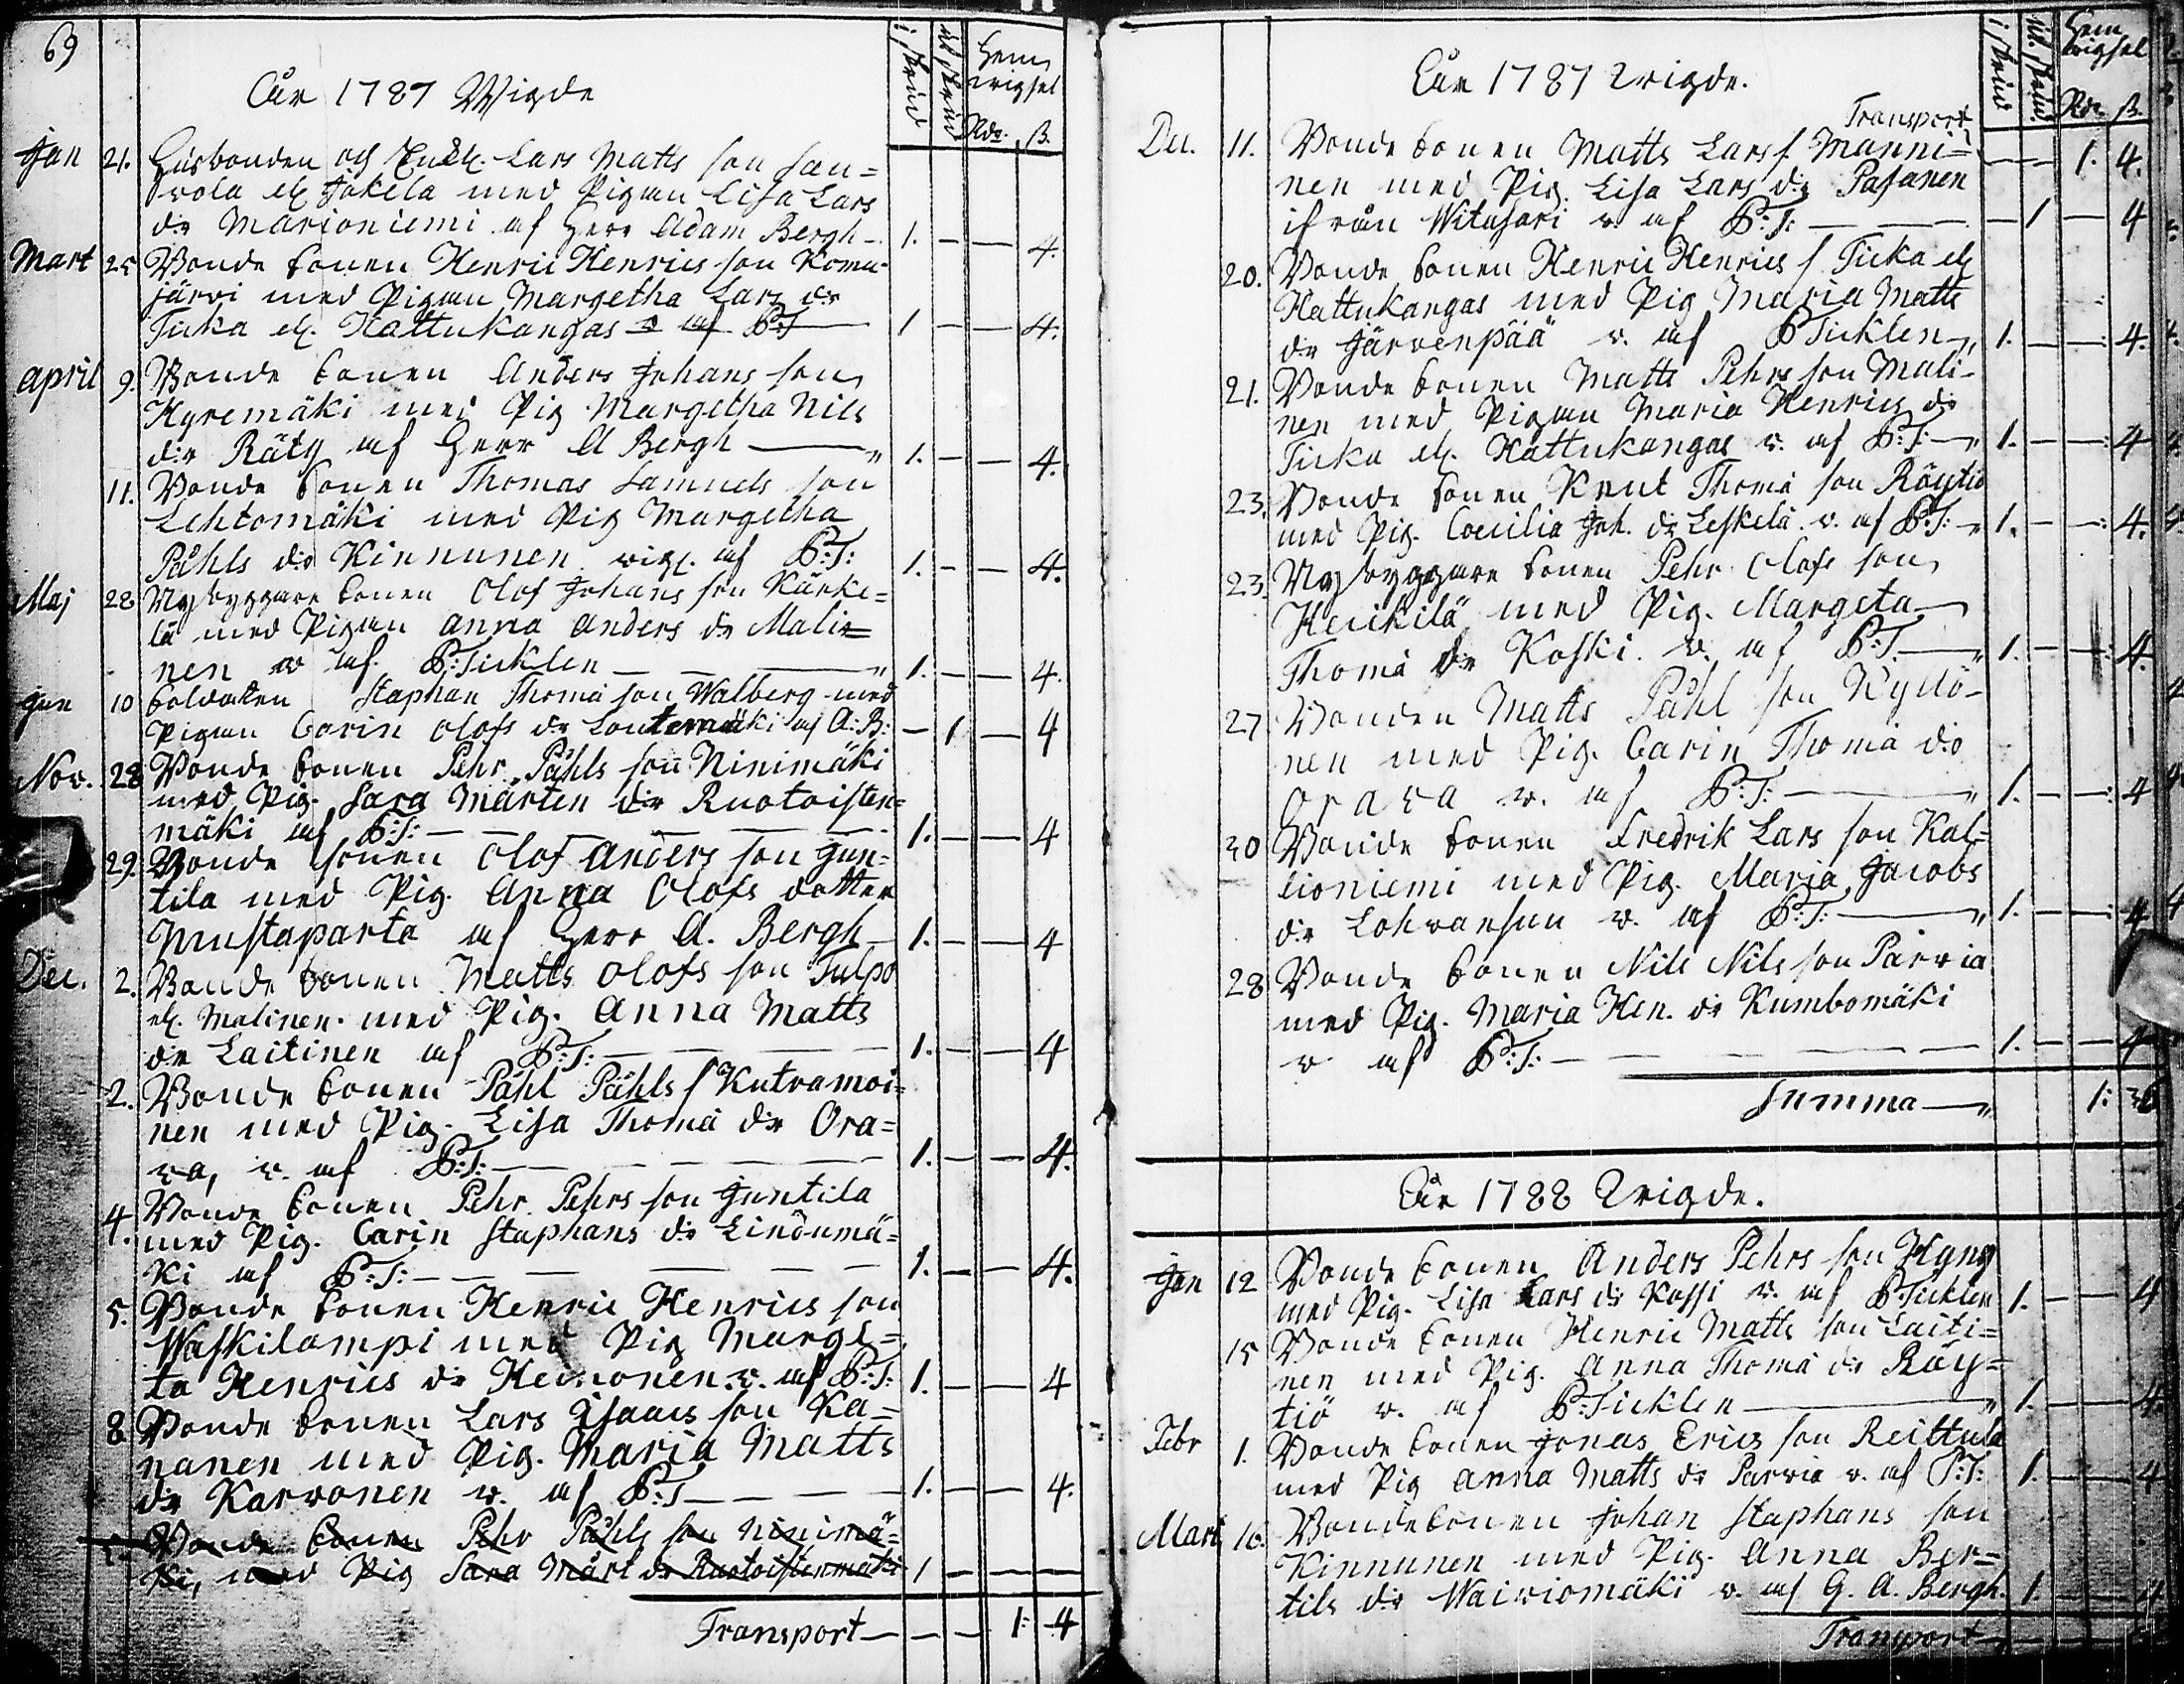 69
Åar 1787 Wigde
i stånd
ut stånd
Hem wigsel
Rdr. ß.
Jan 21. Husbonden och Enkl. Lars Matts son Sau=
vola ell Jokela med Pigan Lisa Lars
dr Marioniemi af Herr Adam Bergh 1. — — 4.
Mart 25 Bonde sonen Henric Henrics son Komu-
järvi med Pigan Margetha Lars dr
Ticka ell. Kattukangas v af P:T 1 — — 4.
April 9. Bonde sonen Anders Johans son
Kyremäki med Pig Margetha Nils
d:r Räty af Herr A Bergh — 1. — — 4.
11. Bonde sonen Thomas Samuels son
Lehtomäki med Pig Margetha
Påhls d:r Kinnunen wigl. af P:T: 1. — — 4.
Maj 28 Nybyggare sonen Olof Johans son Kärke=
lä med Pigan Anna Anders dr Mali=
nen w af P:Ticklen — 1. — — 4.
Jun 10 Soldaten Staphan Thoma son Walberg med
Pigan Carin Olofs dr Loutemäki af A:B: — 1 — 4
Nov. 28 Bonde sonen Pehr Påhls son Ninimäki
med Pig. Sara Mårten d:r Ruotoisten=
mäki af P:T: — 1. — — 4
29. Bonde sonen Olof Anders son Jun=
tila med Pig. Anna Olofs dotter
Mustaparta af Herr A. Bergh 1. — — 4
Dec. 2. Bonde sonen Matts Olofs son Tulpo
ell. Malinen med Pig. Anna Matts
dr Laitinen af P:T: — 1. — — 4
2. Bonde sonen Påhl Påhls s Kutvamoi=
nen med Pig. Lisa Thoma dr Ora=
va, v. af P:T: — 1. — — 4.
4. Bonde sonen Pehr Pehrs son Juntila
med Pig. Carin Staphans dr Lindumä=
ki af P:T: — 1. — — 4.
5. Bonde sonen Henric Henrics son
Waskilampi med Pig Marge=
ta Henrics dr Heinonen v. af P:T: 1. — — 4
8 Bonde sonen Lars Isaacs son Ka=
nanen med Pig. Maria Matts
dr Karvonen v. af P:T — 1. — — 4.
Bonde sonen Pehr Påhls son Ninimä=
ki, med Pig Sara Mårt dr Ruotoistenmäki 1 — —
Transport — — — 1: 4
Åar 1787 Wigde.
i stånd
ut stånd
Hem wigsel
Rdr. ß.
Transport — 1. 4.
Dec. 11. Bonde sonen Matts Lars s Manni=
nen med Pig. Lisa Lars dr Pasanen
ifrån Witasari v af P:T: — 1 — 4
20. Bonde sonen Henric Henrics s Ticka ell
Kattukangas med Pig Maria Matts
dr Järvenpää v. af P Ticklen 1. — — 4.
21. Bonde sonen Matts Pehrs son Mali-
nen med Pigan Maria Henrics dr
Ticka ell. Kattukangas v. af P:T: 1. — — 4
23. Bonde sonen Knut Thoma son Röytiö
med Pig. Coecilia Joh. dr Leskelä v. af P:T: 1. — — 4.
23. Nybyggare sonen Pehr Olofs son
Heikilä med Pig. Margeta
Thoma dr Koski v. af P:T. — 1. — — 4.
27 Bonden Matts Påhl son Kylö-
nen med Pig. Carin Thoma dr
Orava v. af P:T: — 1. — — 4
30 Bonde sonen Fredrik Lars son Kal=
lioniemi med Pig. Maria Jacobs
d:r Lohvansuu v. af P:T: — 1. — — 4
28 Bonde sonen Nils Nils son Parvia
med Pig. Maria Hen. dr Kumbomäki
v af P:T: — 1. — — 4
Summa — 1: 36
Åar 1788 Wigde.
Jan 12 Bonde sonen Anders Pehrs son Hyny
med Pig. Lisa Lars dr Kossi v. af P:Ticklen 1. — — 4
15 Bonde sonen Henric Matts son Laiti=
nen med Pig. Anna Thoma dr Röy=
tiö v. af P:Ticklen — 1. — — 4
Febr 1. Bonde sonen Jonas Erics son Reittula
med Pig Anna Matts dr Parvia v. af P:T: 1. — — 4
Mart 16. Bondesonen Johan Staphans son
Kinnunen med Pig. Anna Ber=
tils d:r Waiviomäki v. af G. A. Bergh. 1. — — 4
Transport —